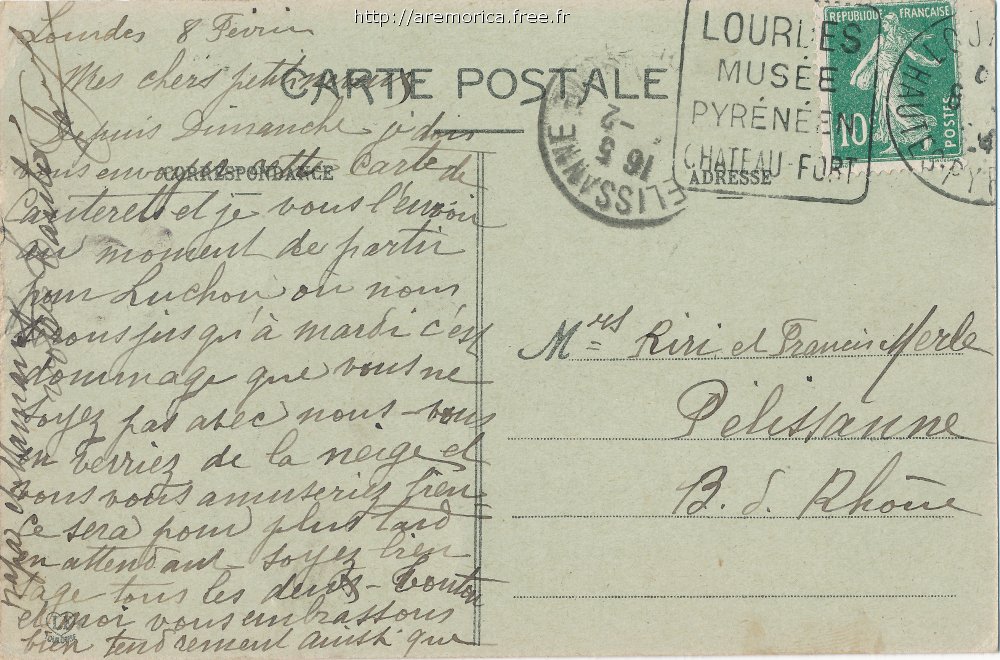 http://aremorica.free.fr
CARTE POSTALE
CORRESPONDANCE
ADRESSE
LOURDES
MUSÉE
PYRÉNÉEN
CHATEAU-FORT
RÉPUBLIQUE FRANÇAISE
10
POSTES
16 -2
ELISSANNE
Lourdes 8 Février
Mes chers petits
depuis Dimanche je dois
vous envoyer cette Carte de
Cauterets et je vous l'envoie
au moment de partir
pour Luchon où nous
serons jusqu'à mardi c'est
dommage que vous ne
soyez pas avec nous - vous
en verriez de la neige et
vous vous amuseriez bien
Ce sera pour plus tard
en attendant soyez bien
sage tous les deux - Tonton
et moi vous embrassons
bien tendrement ainsi que
papa et maman
Mrs Riri et Francis Merle
Pélissanne
B. d. Rhône